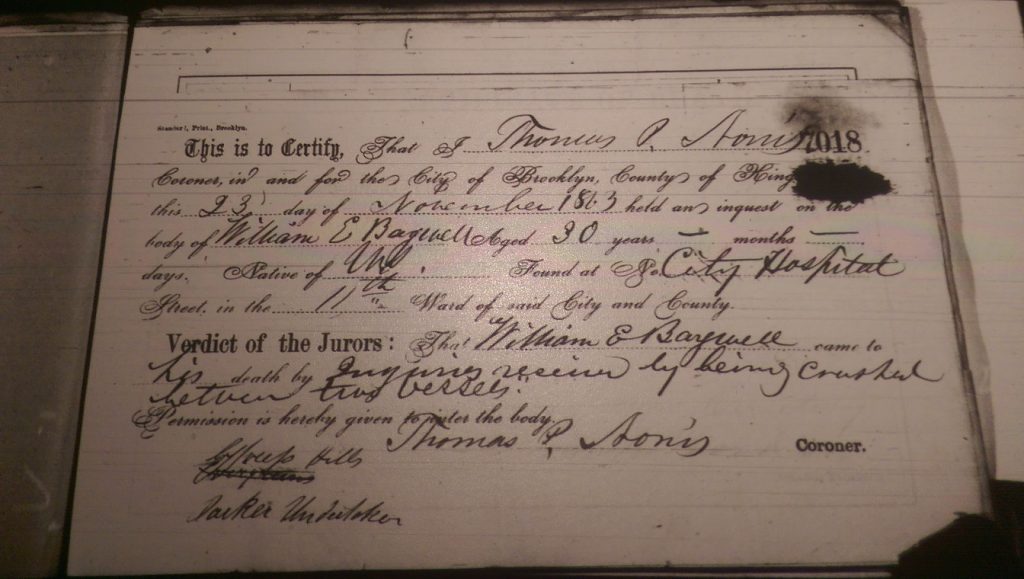 Standard Print., Brooklyn.
This is to Certify, That I Thomas P. Norris 7018
Coroner, in and for the City of Brooklyn, County of King
this 23 day of November 1863 held an inquest on the
body of William E Bagwell Aged 30 years — months —
days. Native of Found at No. City Hospital
Street, in the 11th Ward of said City and County.
Verdict of the Jurors: That William E Bagwell came to
his death by Injuries received by being crushed
between two vessels."
Permission is hereby given to inter the body.
Thomas P. Norris Coroner.
Cypress Hills
Parker Undertaker